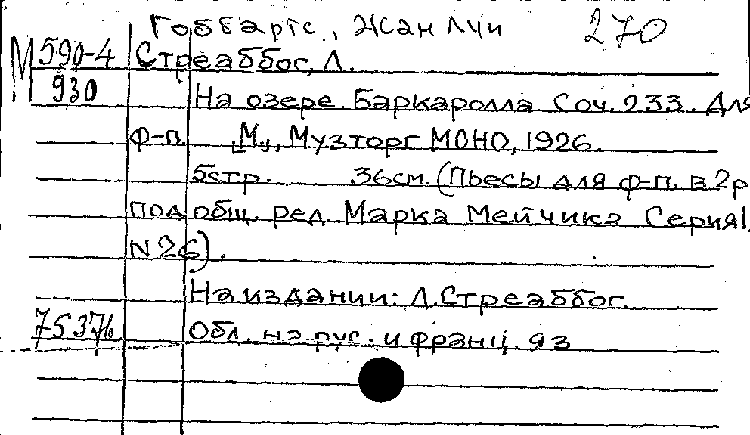 Гоббартс., Жан Луи 270
М 590-4 Стреаббог, Л.
930 На озере. Баркаролла Соч. 233. Для
ф-п. [М.], Музторг МОНО, 1926.
5стр. 36см. (Пьесы для ф-п. в 2р
под общ. ред. Марка Мейчика Серия I,
N 26).
На издании: Л. Стреаббог.
75376 Обл. на рус. и франц. яз